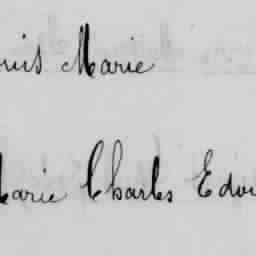 uis Marie
Marie Charles Edou